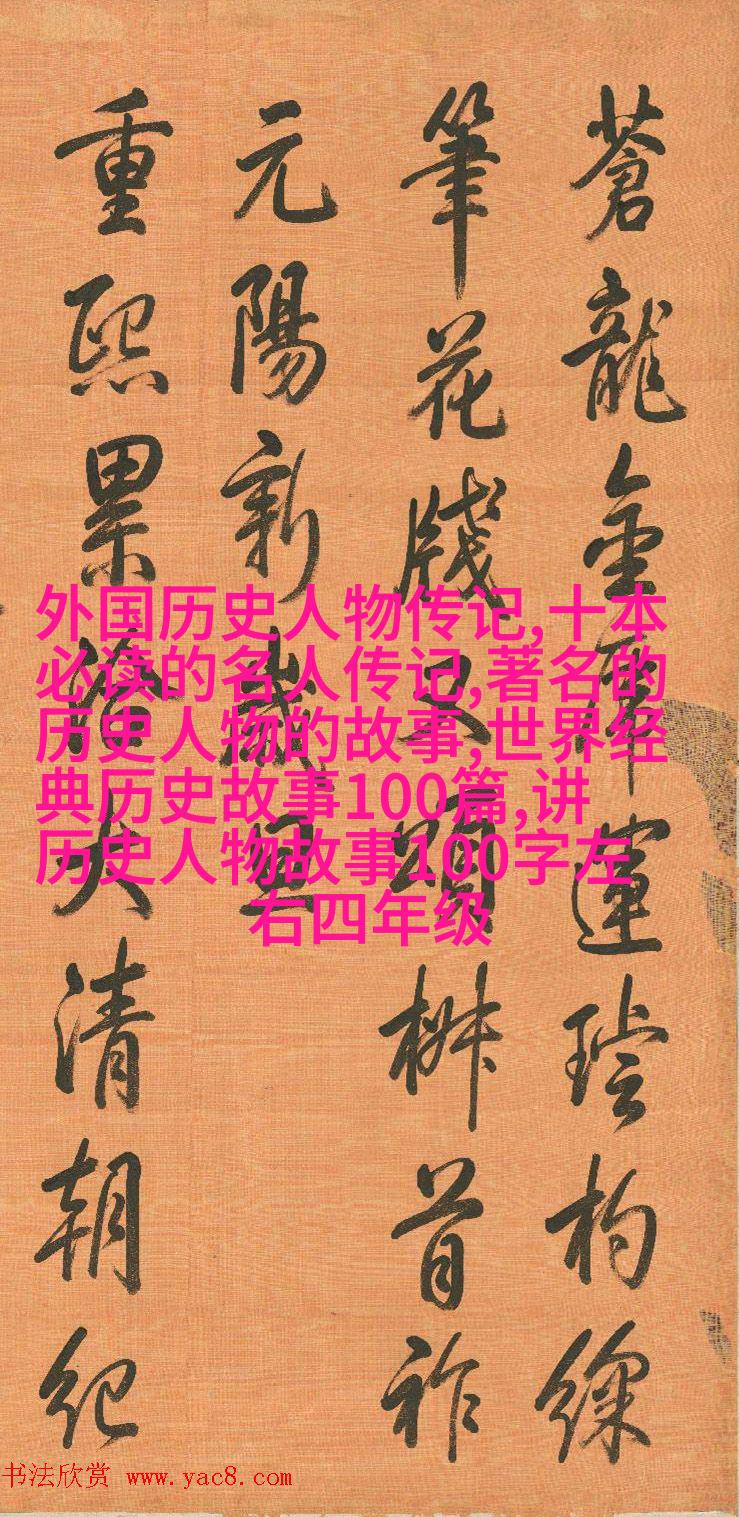 蒼龍金運杓
筆花牋又頌椒首祚
元陽新歲
重熙累洽大清朝紀
外国历史人物传记,十本
必读的名人传记,著名的
历史人物的故事,世界经
典历史故事100篇,讲
历史人物故事100字左
右四年级
书法欣赏 www.yac8.com